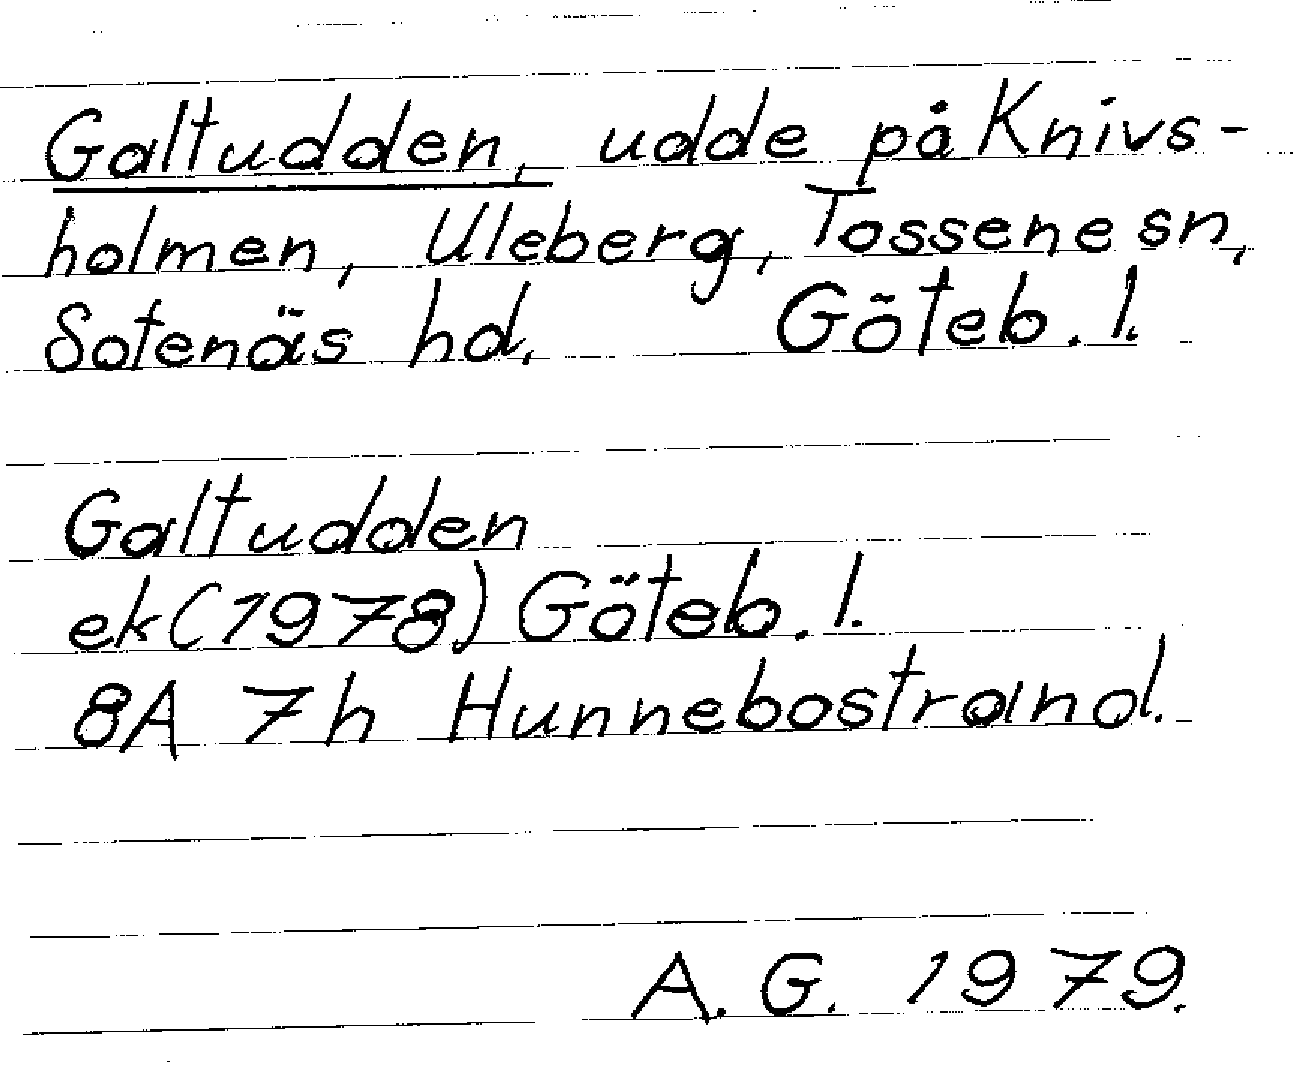 Galtudden, udde på Knivs-
holmen, Uleberg, Tossene sn,
Sotenäs hd. Göteb. l.
Galtudden
ek (1978) Göteb. l.
8A 7h Hunnebostrand.
A. G. 1979.